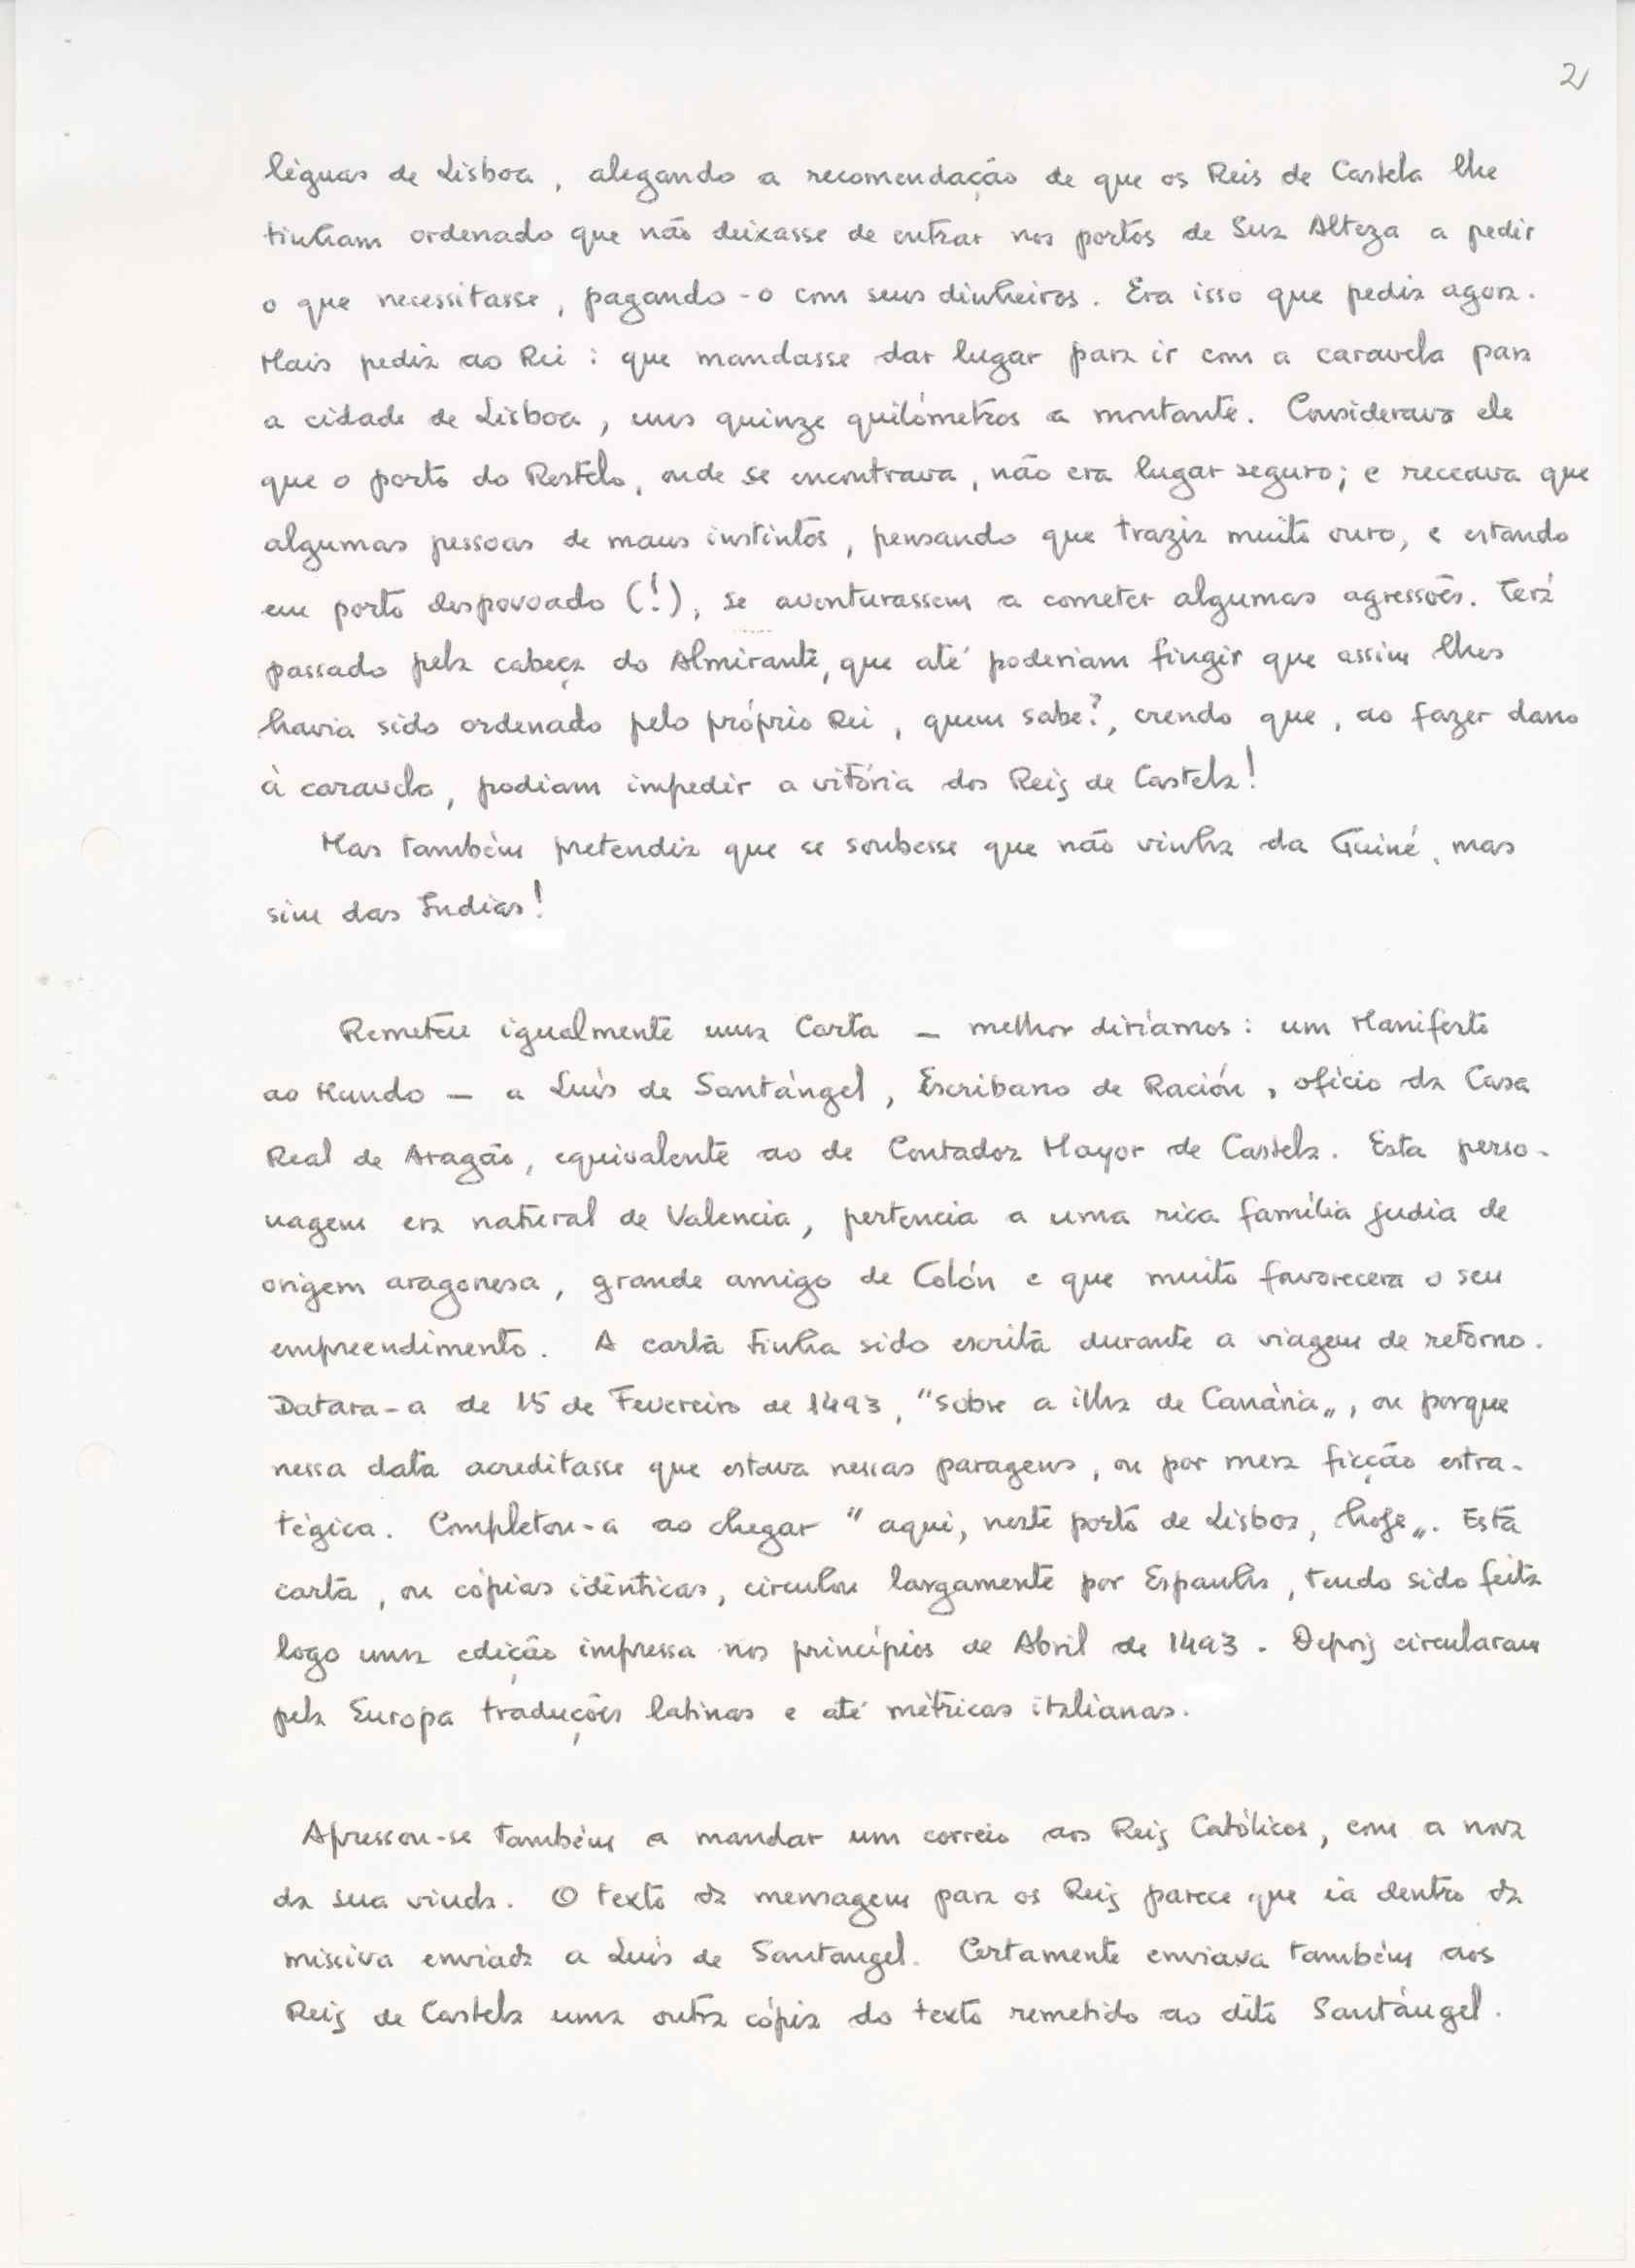 2
léguas de Lisboa, alegando a recomendação de que os Reis de Castela lhe
tinham ordenado que não deixasse de entrar nos portos de Sua Alteza a pedir
o que necessitasse, pagando-o com seus dinheiros. Era isso que pedia agora.
Mais pedia ao Rei: que mandasse dar lugar para ir com a caravela para
a cidade de Lisboa, uns quinze quilómetros a montante. Considerava ele
que o porto do Restelo, onde se encontrava, não era lugar seguro; e receava que
algumas pessoas de maus instintos, pensando que trazia muito ouro, e estando
em porto despovoado (!), se aventurassem a cometer algumas agressões. Terá
passado pela cabeça do Almirante, que até poderiam fingir que assim lhes
havia sido ordenado pelo próprio Rei, quem sabe?, crendo que, ao fazer dano
à caravela, podiam impedir a vitória dos Reis de Castela!
Mas também pretendia que se soubesse que não vinha da Guiné, mas
sim das Índias!
Remeteu igualmente uma Carta — melhor diríamos: um Manifesto
ao Mundo — a Luís de Santángel, Escribano de Ración, ofício da Casa
Real de Aragão, equivalente ao de Contador Mayor de Castela. Esta perso-
nagem era natural de Valencia, pertencia a uma rica família judia de
origem aragonesa, grande amigo de Colón e que muito favorecera o seu
empreendimento. A carta tinha sido escrita durante a viagem de retorno.
Datara-a de 15 de Fevereiro de 1493, "sobre a ilha de Canária", ou porque
nessa data acreditasse que estava nessas paragens, ou por mera ficção estra-
tégica. Completou-a ao chegar "aqui, neste porto de Lisboa, hoje". Esta
carta, ou cópias idênticas, circulou largamente por Espanha, tendo sido feita
logo uma edição impressa nos princípios de Abril de 1493. Depois circularam
pela Europa traduções latinas e até métricas italianas.
Apressou-se também a mandar um correio aos Reis Católicos, com a nova
da sua vinda. O texto da mensagem para os Reis parece que ia dentro da
missiva enviada a Luís de Santangel. Certamente enviava também aos
Reis de Castela uma outra cópia do texto remetido ao dito Santángel.